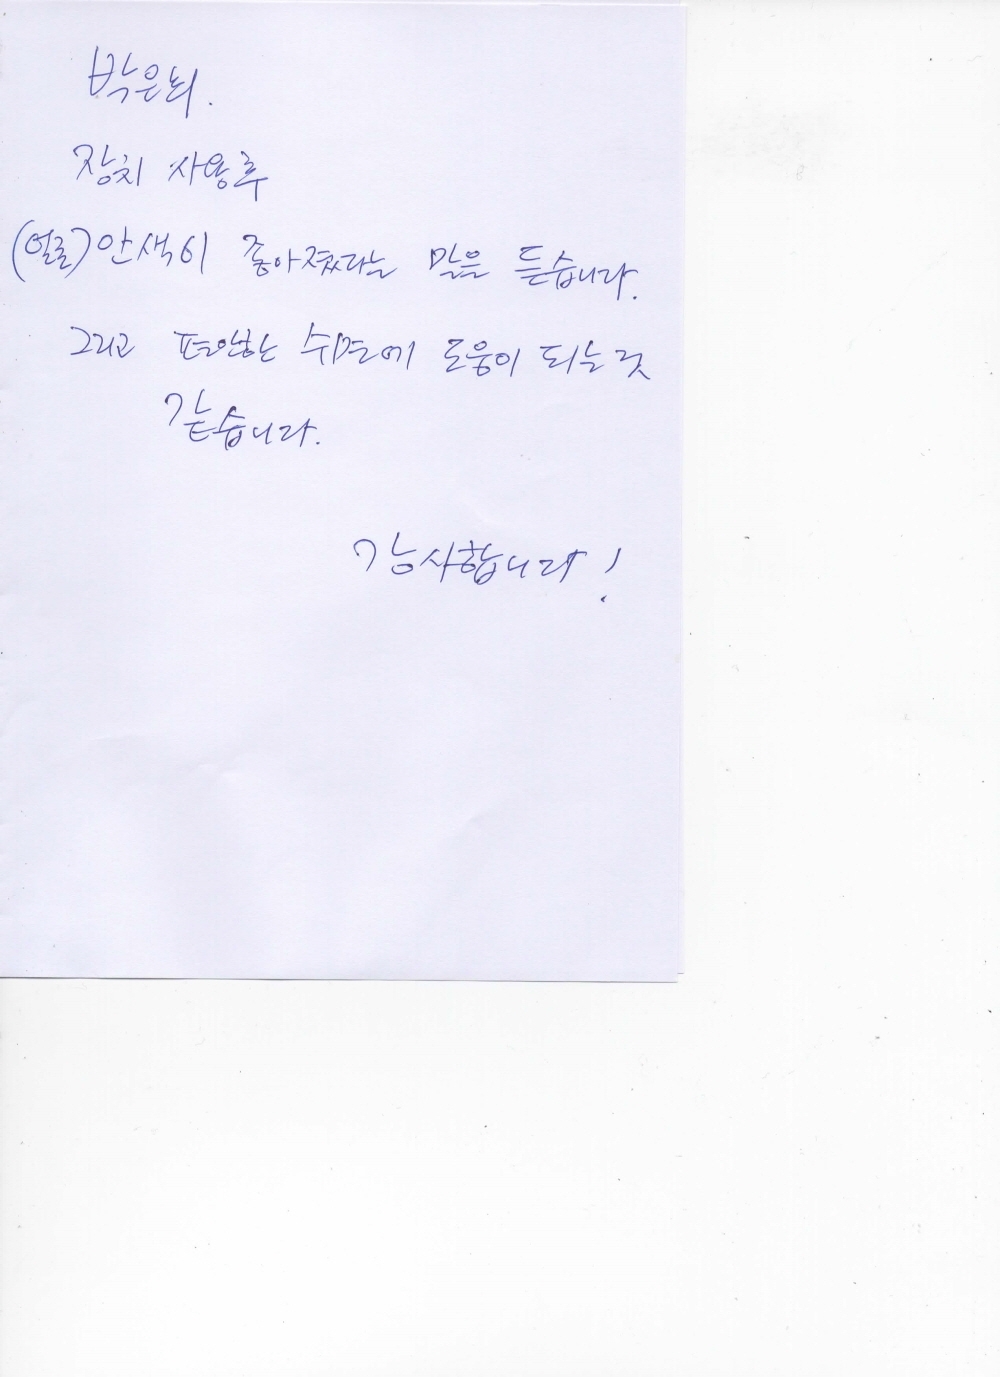 박은희.
장치 사용후
(얼굴)안색이 좋아졌다는 말을 듣습니다.
그리고 편안한 수면에 도움이 되는 것
같습니다.
감사합니다!